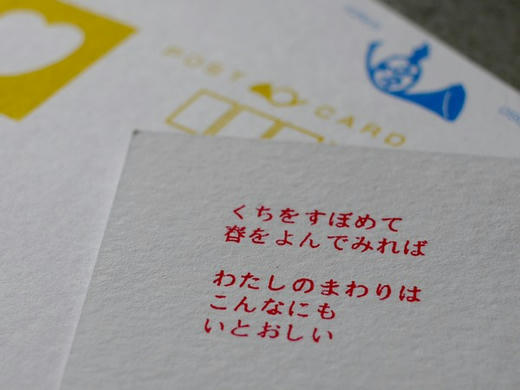 POST CARD
くちをすぼめて
春をよんでみれば
わたしのまわりは
こんなにも
いとおしい